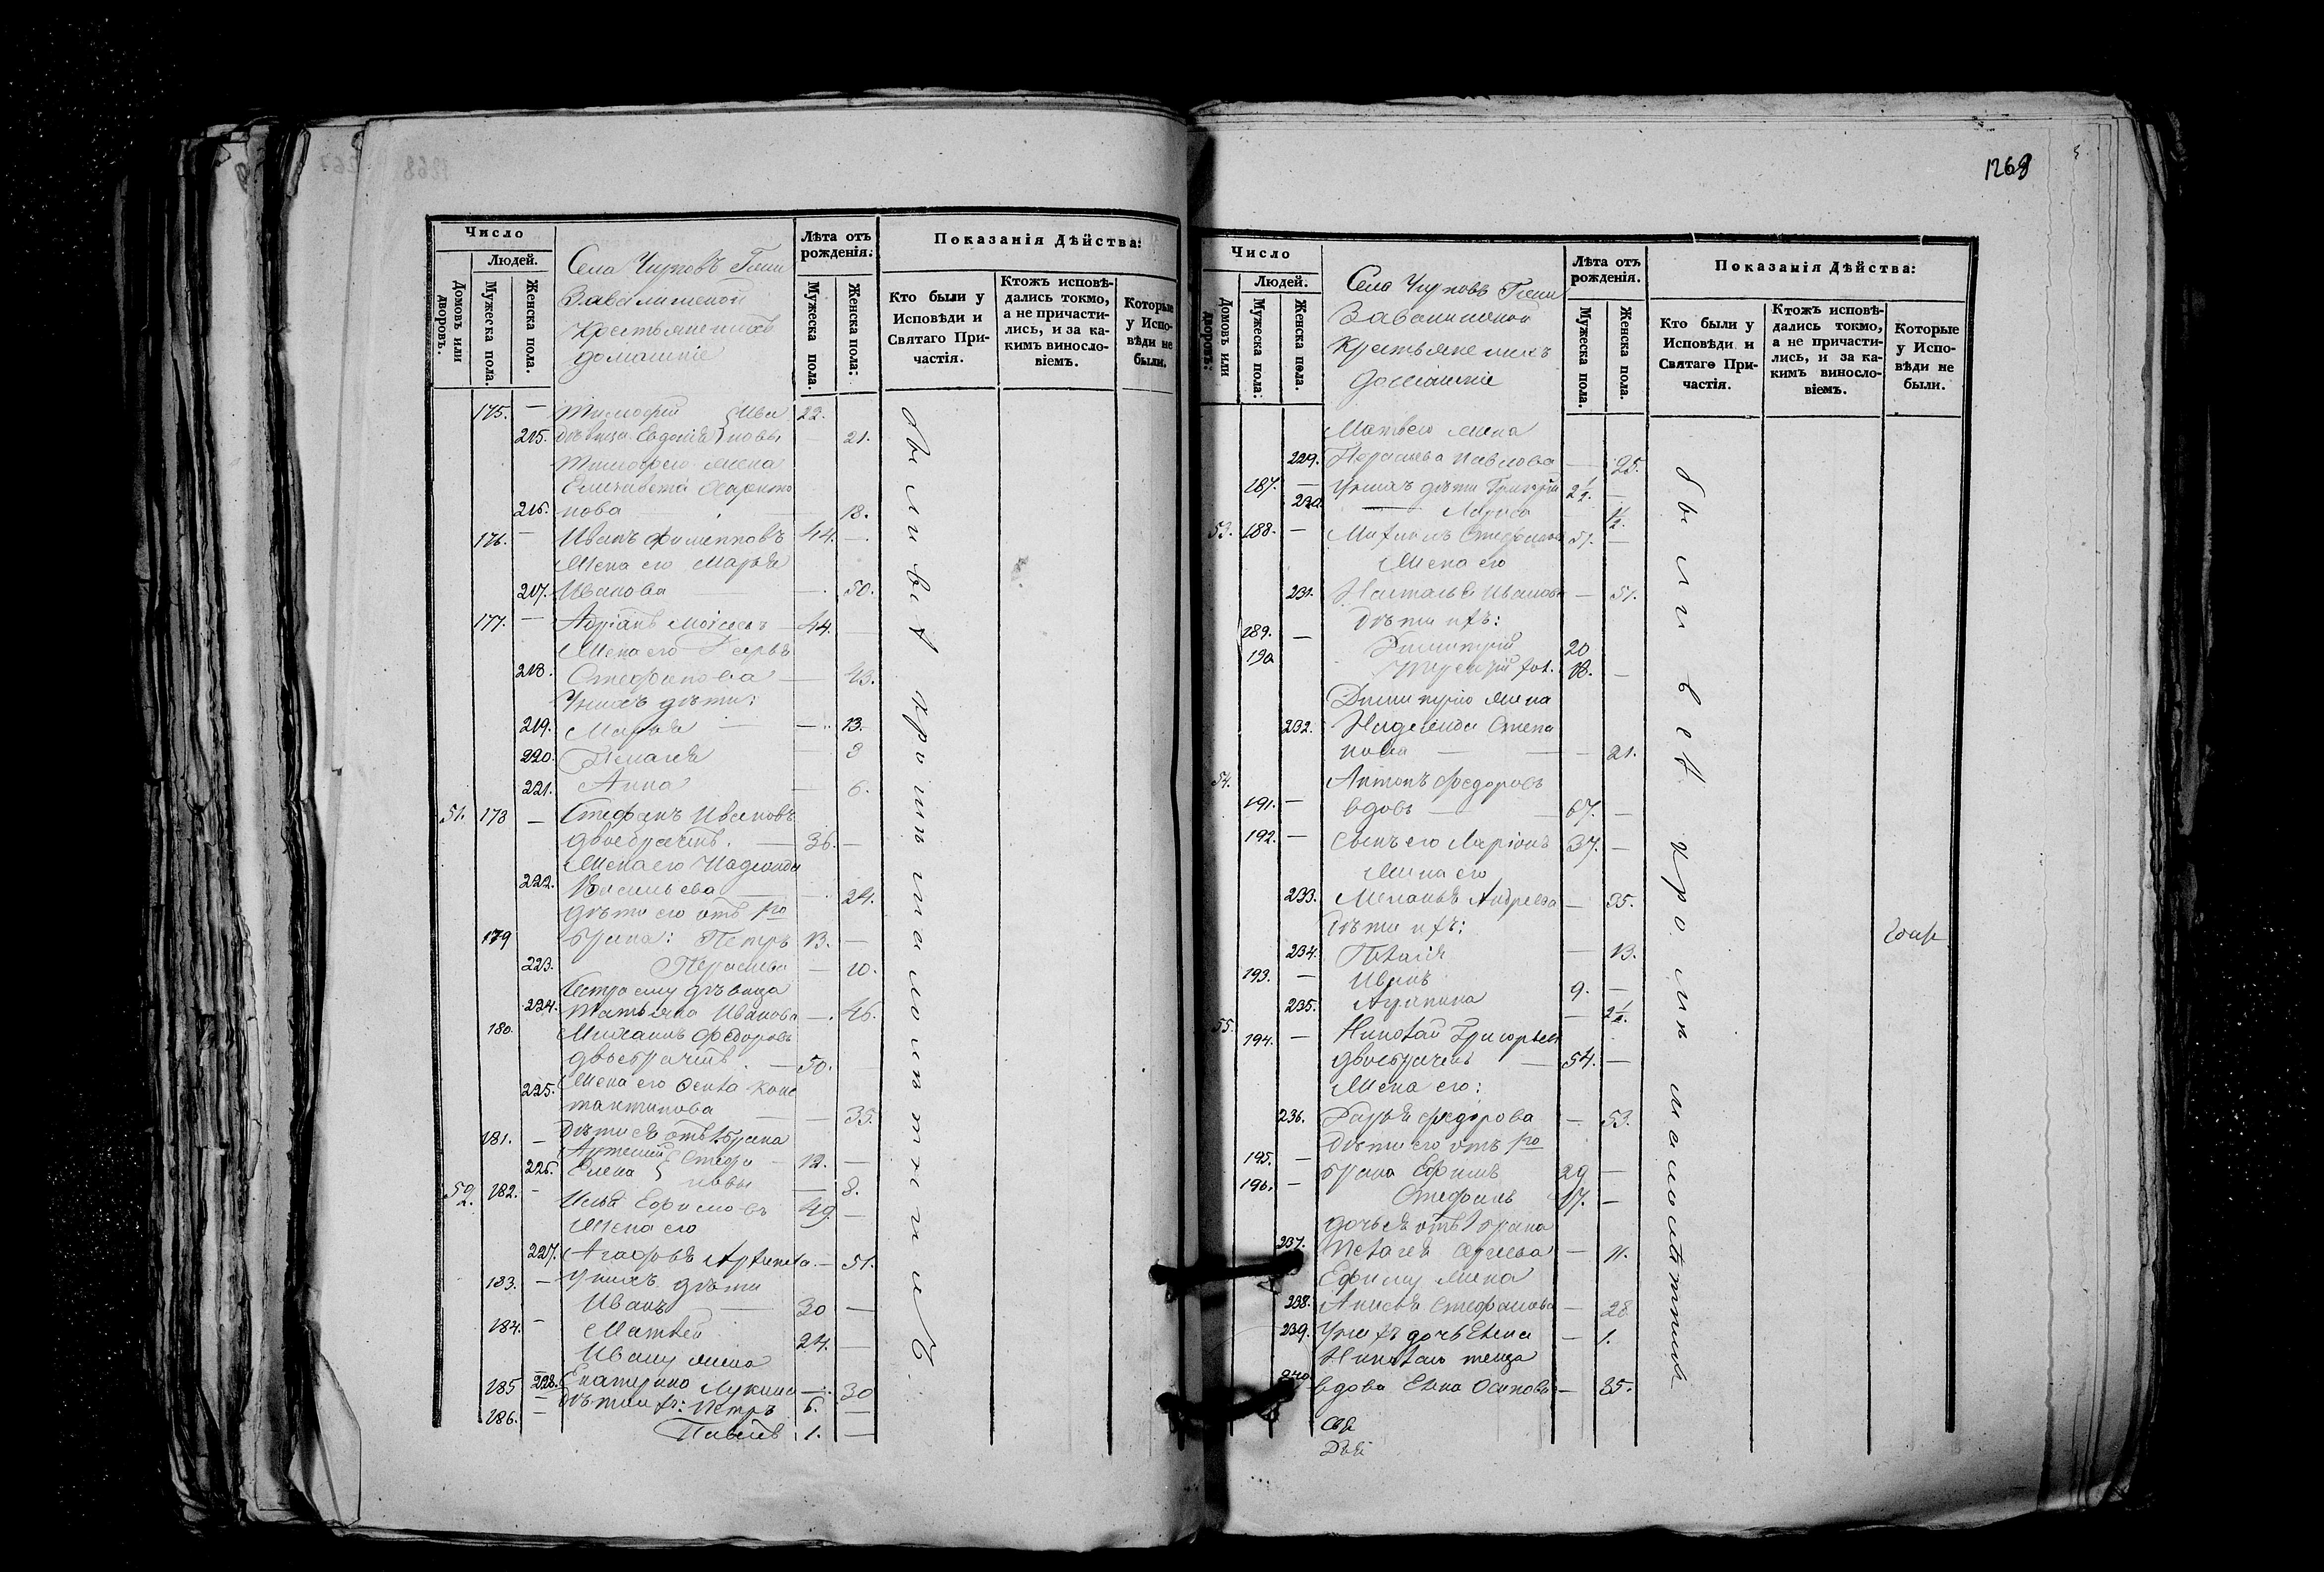 1268
Число
Людей.
Домовъ или дворовъ.
Мужеска пола.
Женска пола.
Села Чирковъ
крестьяне ихъ
домашніе
Лѣта отъ рожденія:
Мужеска пола.
Женска пола:
Показанія Дѣйства:
Кто были у Исповѣди и Святаго Причастія.
Ктожъ исповѣдались токмо, а не причастились, и за какимъ винословіемъ.
Которые у Исповѣди не были.
175. — Тимофей } Ива 22.
215. дѣвица Евдокія } новы 21.
Тимофею жена
Елизавета Харито
216. нова 18.
176. — Иванъ Филипповъ 44. —
Жена его Марья
217. Иванова — 50.
177. — Адріанъ Моисеевъ 44. —
Жена его Дарья
218. Стефанова — 43.
У нихъ дѣти:
219. Марья — 13.
220. Пелагея — 8
221. Анна — 6.
51. 178 — Стефанъ Ивановъ
двоебрачн. — 36. —
Жена его Надежда
222. Васильева — 24.
дѣти его отъ 1го
179 брака: Петръ 13. —
223. Параскева — 10.
Сестра ему дѣвица
224. Татьяна Иванова — 46.
180. Михаилъ Федоровъ
двоебрачн. — 50.
225. Жена его Фекла Конс
тантинова — 35.
181. — Дѣти ея отъ 1 брака
Артемий } Стефа 12. —
226. Елена } новы — 8.
52. 182. — Илья Ефимовъ 49. —
Жена его
227. Агафья Артемова — 51.
183. — У нихъ дѣти
Иванъ 30 —
184. — Матвей 24. —
Ивану жена
228. Екатерина Лукина — 30
185 — Дѣти ихъ: Петръ 6. —
186. — Павелъ 1. —
были всѣ кромѣ малолѣтнихъ
1268
Число
Людей.
Домовъ или дворовъ:
Мужеска пола:
Женска пола.
Села Чирковъ
Крестьяне ихъ
Домашніе
Лѣта отъ рожденія.
Мужеска пола.
Женска пола.
Показанія Дѣйства:
Кто были у Исповѣди и Святаго Причастія.
Ктожъ исповѣдались токмо, а не причастились, и за какимъ винословіемъ.
Которые у Исповѣди не были.
Матвею жена
229. Парасковья Павлова — 25.
187. — У нихъ дѣти Григорій 2½. —
230. 1½.
53. 188. — Михаилъ Стефановъ 51. —
Жена его
231. Наталья Иванова — 51.
Дѣти ихъ:
189. — Димитрій 20
190 18. —
Димитрію жена
232. Надежда Степа
нова — 21.
54. Антонъ Федоровъ
191. — вдовъ — 67. —
192. — Сынъ его Ларіонъ 37. —
Жена его
233. Меланья Андреева — 35.
Дѣти ихъ:
234. Пелагія — 13.
193. — Иванъ 9. —
235. Агрипина — 2½.
55. 194. — Николай Григорьевъ
двоебрачнъ — 54. —
Жена его:
236. Дарья Федорова — 53.
Дѣти его отъ 1го
195. — брака Ефимъ 29 —
196. — Стефанъ 17. —
дочь ея отъ 1 брака
237. Пелагея Сергѣева — 11.
Ефиму жена
238. Анисья Стефанова — 28
239. У нихъ дочь Елена — 1.
Николаю теща
240 вдова Елена Осипова — 85.
были всѣ кромѣ малолѣтнихъ